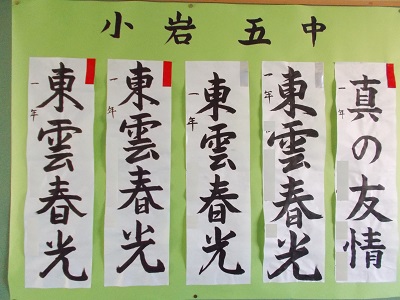 小岩五中
真の友情
一年
東雲春光
一年
東雲春光
一年
東雲春光
一年
東雲春光
一年